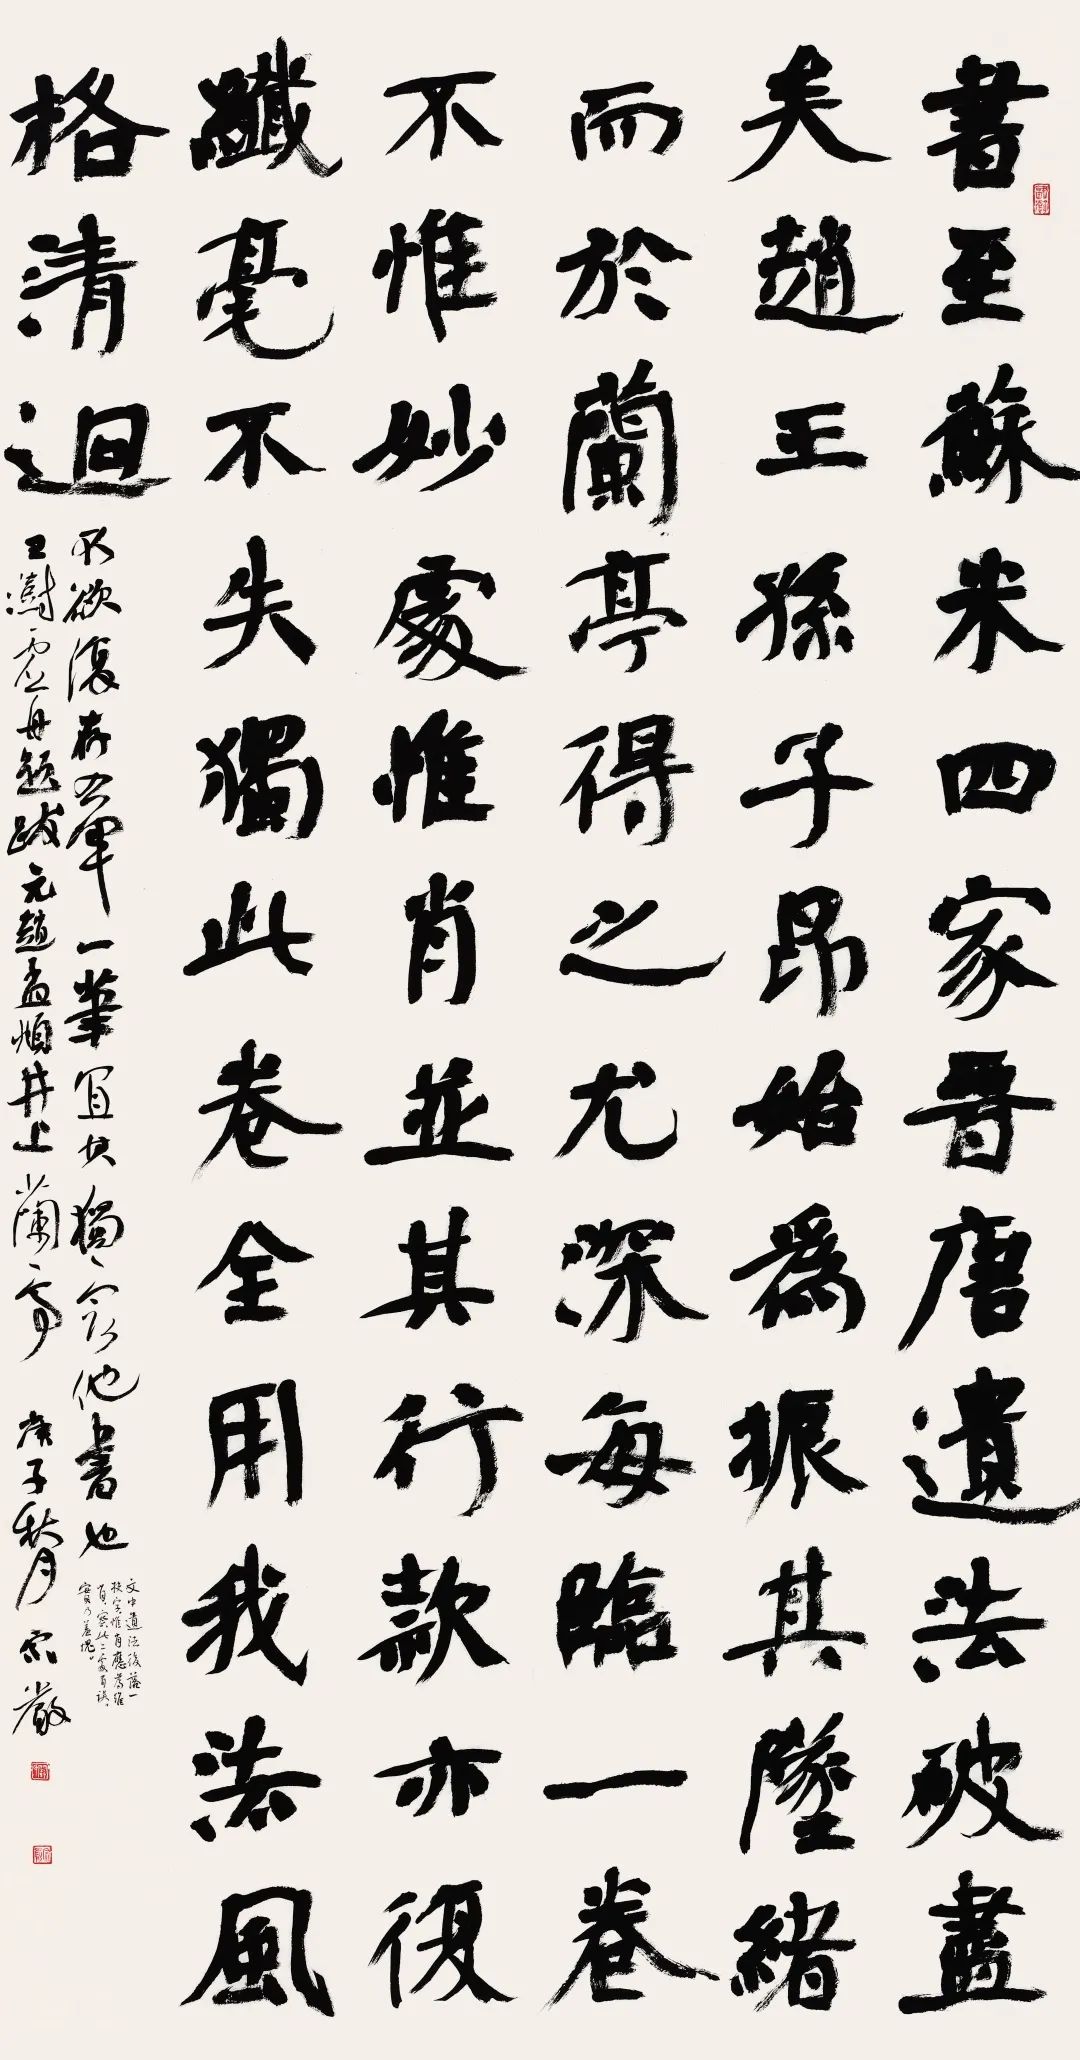 書至蘇米四家晋唐遺法破盡
矣趙王孫子昂始爲振其墜緒
而於蘭亭得之尤深每臨一卷
不惟妙處惟肖並其行款亦復
纖毫不失獨此卷全用我法風
格清迥
不欲復存右軍一筆宜其獨冠他書也
王澍虛舟題跋元趙孟頫井上蘭亭
庚子秋月宗嚴